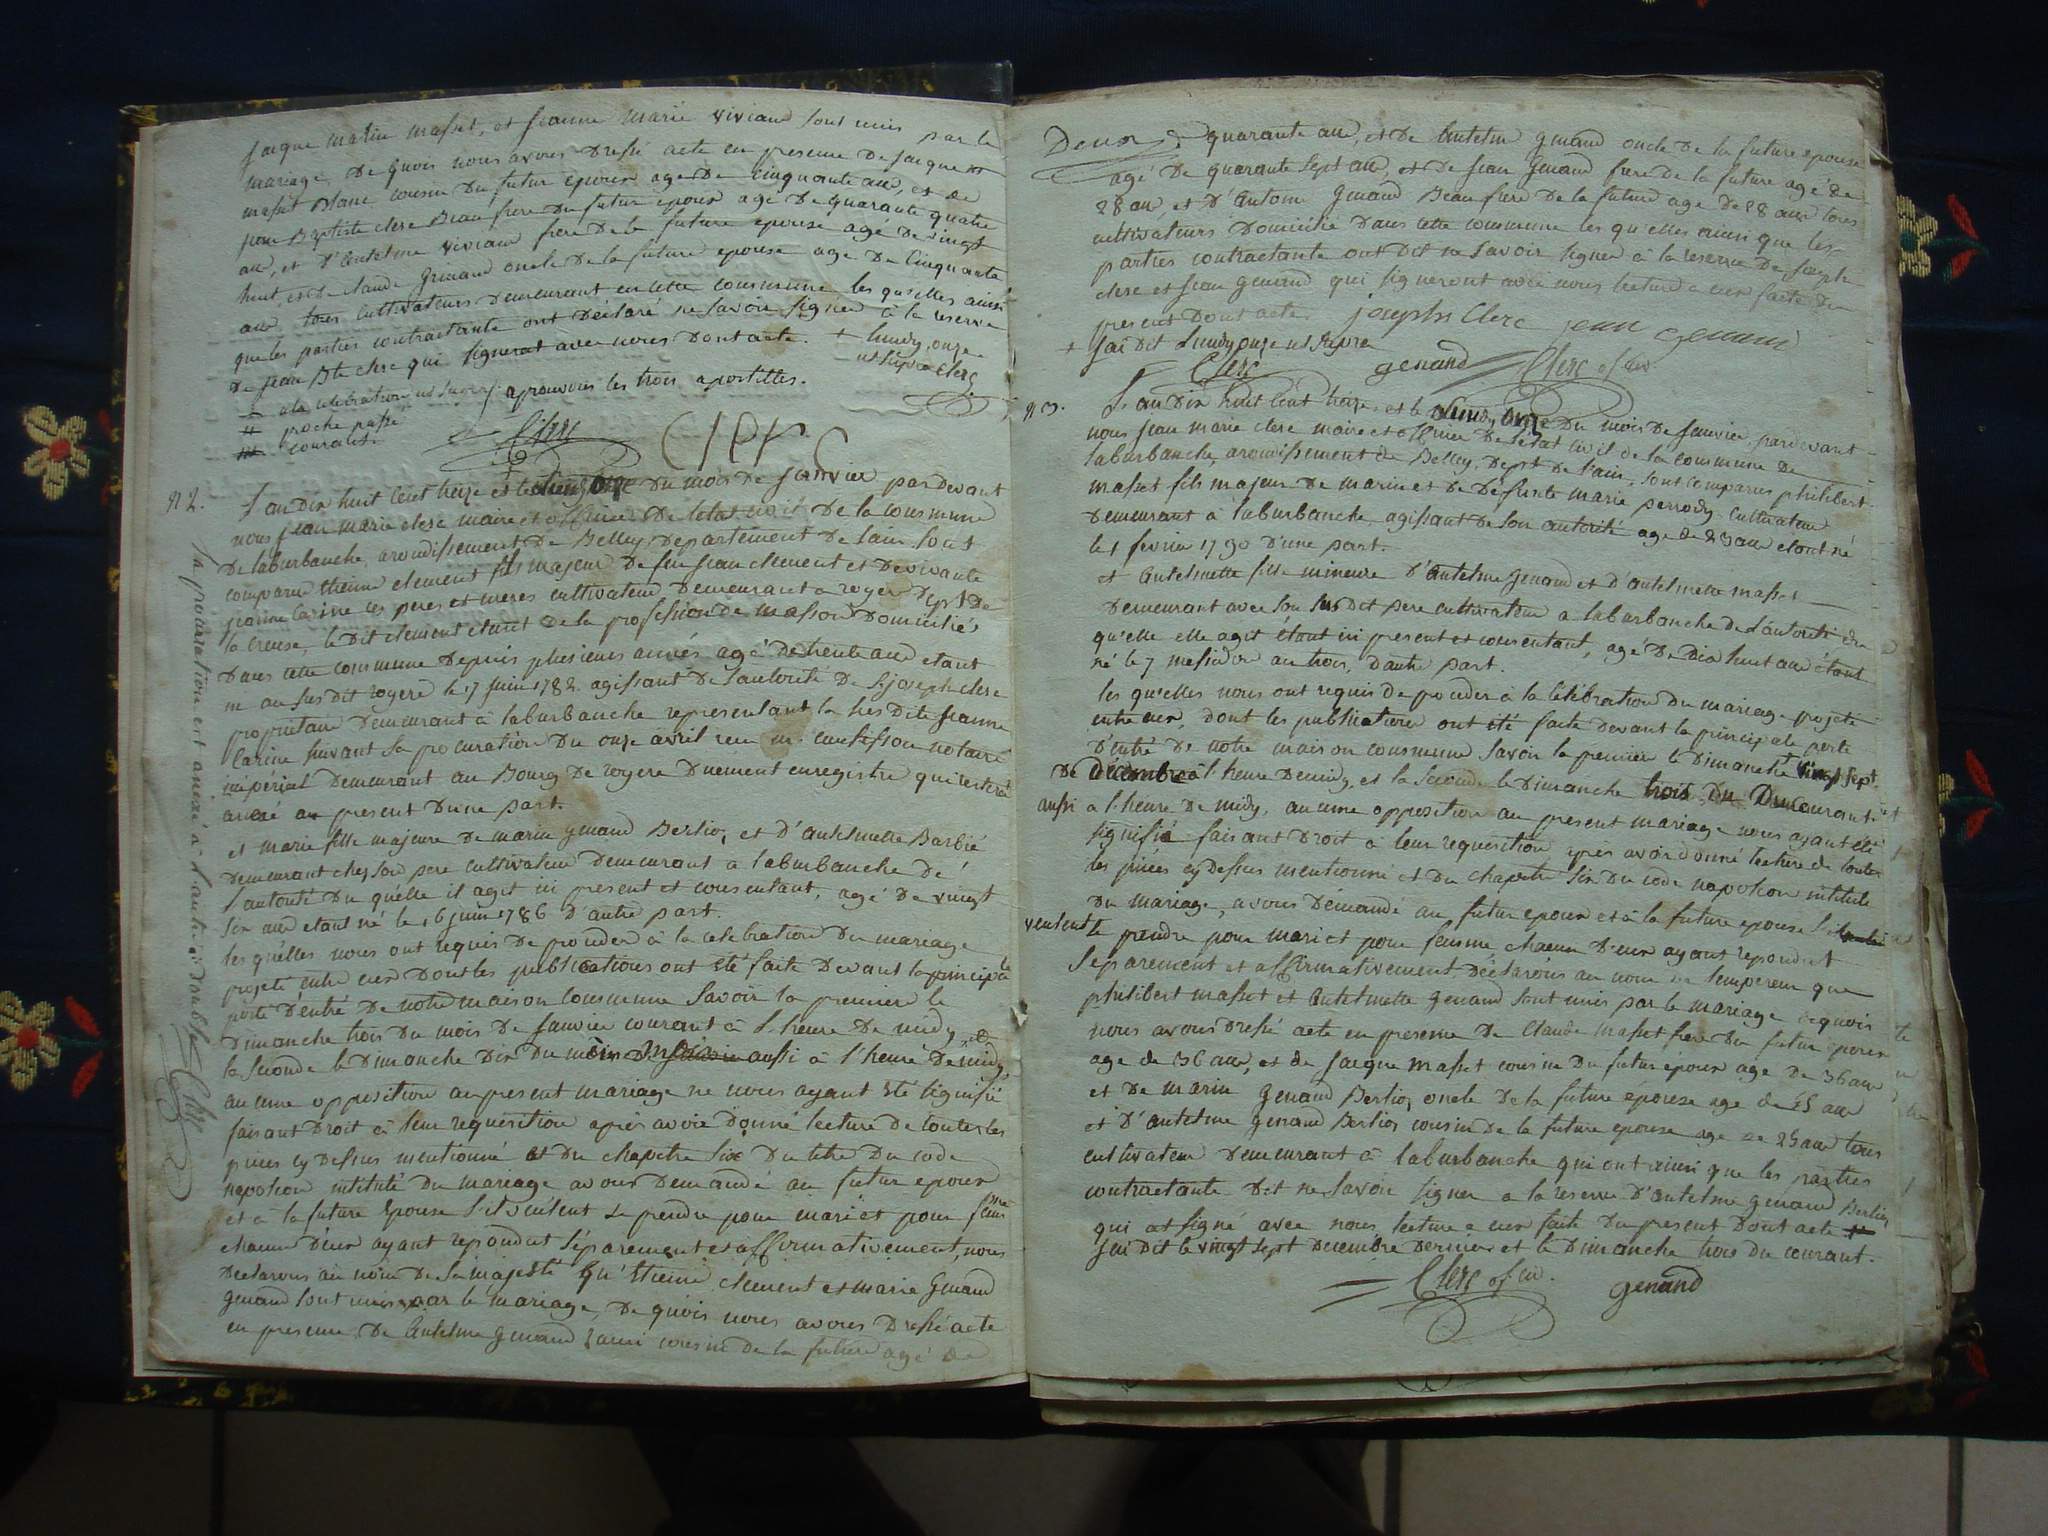 jacque marin masset, et jeanne marie viviand sont unis par le
mariage, de quoi nous avons dressé acte en presence de jacque
masset blanc cousin du futur epoux agé de cinquante ans, et de
jean Baptiste clerc Beau frere du futur epoux agé de quarante quatre
ans, et d'antelme viviand frere de la future epouse agé de vingt
huit, et de claude genand oncle de la future epouse agé de cinquante
ans tous cultivateurs demeurant en cette commune les qu'elles ainsi
que les parties contractante ont déclaré ne savoir signer à la reserve
de jean Bte clerc qui signerat avec nous dont acte. + lundy onze
ut supra Clerc
a la celebration ut supra aprouvons les trois apostilles.
proche passé
courant
Clerc
n 2. L'an dix huit cent treize et le lundy onze du mois de janvier pardevant
nous jean marie clerc maire et officier de l'etat civil de la commune
de laburbanche, arondissement de Belley, departement de l'ain sont
comparu etienne clement fils majeur de feu jean clement et de vivante
jeanne carine ces peres et meres cultivateur demeurant a royer dept de
la creuse, le dit clement etant de la profession de masson domicilié
dans cette commune depuis plusieurs années agé de trente ans etant
né au sus dit royere le 17 juin 1782. agissant de l'autorité de Sr joseph clerc
propriétaire demeurant à laburbanche representant la sus dite jeanne
carine suivant sa procuration du onze avril recu me notaire
impérial demeurant au Bourg de royere duement enregistre qui restera
anexé au present dune part.
et marie fille majeure de marin genand Berlioz et d'antelmette Barbié
demeurant chez son pere cultivateur demeurant a laburbanche de
l'autorité du quélle il agit ici present et consentant, agé de vingt
six ans etant né le 16 juin 1786 d'autre part.
les quélles nous ont requis de proceder à la celebration du mariage
projeté entre eux dont les publications ont eté faite devant la principale
porte d'entré de notre maison commune savoir la premier le
dimanche trois du mois de janvier courant à l'heure de midy et
la seconde le dimanche dix du mois aussi à l'heure de midy,
aucune opposition au present mariage ne nous ayant eté signifié
faisant droit à leur requisition après avoir donné lecture de toutes les
pieces cy dessus mentionné et du chapitre six du titre du code
napoleon intitulé du mariage avons demandé au futur epoux
et à la future epouse s'il veulent se prendre pour mari et pour femme
chacun d'eux ayant repondut séparement et affirmativement, nous
declarons au nom de sa majesté qu'etienne clement et marie genand
genand sont unis par le mariage, de quoi nous avons dressé acte
en presence de antelme genand cousin de la future agé de
la procuration est anexé à l'autre double
Clerc
Deux de quarante ans, et de antelm genand oncle de la future epouse
agé de quarante sept ans, et de jean genand frere de la future agé de
28 ans, et d'antoine genand Beau frere de la future agé de 28 ans tous
cultivateurs domicilié dans cette commune les qu'elles ainsi que les
parties contractante ont dit ne savoir signer à la reserve de joseph
clerc et jean genand qui signeront avec nous lecture a eux faite du
present dont acte. joseph Clerc jean Genand
+ jai dit lundy onze ut supra
Clerc genand Clerc of. civ
n 3. L'an dix huit cent treize et le lundy onze du mois de janvier, pardevant
nous jean marie clerc maire et officier de l'etat civil de la commune de
laburbanche, arondissement de Belley, dept de l'ain, sont comparus philibert
masset fils majeur de marin et de defunte marie perrody cultivateur
demeurant à laburbanche agissant de son autorité age de 23 ans etant né
le 1 fevrier 1790 d'une part.
et antelmette fille mineure d'antelme genand et d'antelmette masset
demeurant avec son sus dit pere cultivateur a laburbanche de l'autorité du
qu'elle elle agit étant ici present et consentant, agé de dix huit ans étant
né le 7 messidor an trois, d'autre part.
les qu'elles nous ont requis de proceder à la célébration du mariage projeté
entre eux, dont les publications ont eté faite devant la principale porte
d'entré de notre maison commune savoir la premier le dimanche vingt sept
de décembre à l'heure de midy, et la seconde le dimanche trois du courant
aussi a l'heure de midy, aucune opposition au present mariage nous ayant été
signifié faisant droit à leur requisition après avoir donné lecture de toutes
les pieces cy dessus mentionné et du chapitre six du code napoleon intitulé
du mariage, avons démandé au futur epoux et à la future epouse s'il
veulent se prendre pour mari et pour femme chacun d'eux ayant repondut
séparement et affirmativement, déclarons au nom de l'empereur que
philibert masset et antelmette genand sont unis par le mariage dequoi
nous avons dressé acte en presence de claude masset frere du futur epoux
age de 36 ans, et de jacque masset cousin du futur epoux age de 36 ans
et de marin genand Berlioz oncle de la future épouse age de 55 ans
et d'antelme genand Berlioz cousin de la future epouse age de 25 ans tous
cultivateur demeurant à laburbanche qui ont ainsi que les parties
contractante dit ne savoir signer a la reserve d'antelme genand Berlioz
qui at signé avec nous, lecture a eux faite du present dont acte
jai dit le vingt sept decembre dernier et le dimanche trois du courant.
Clerc of. civ. genand